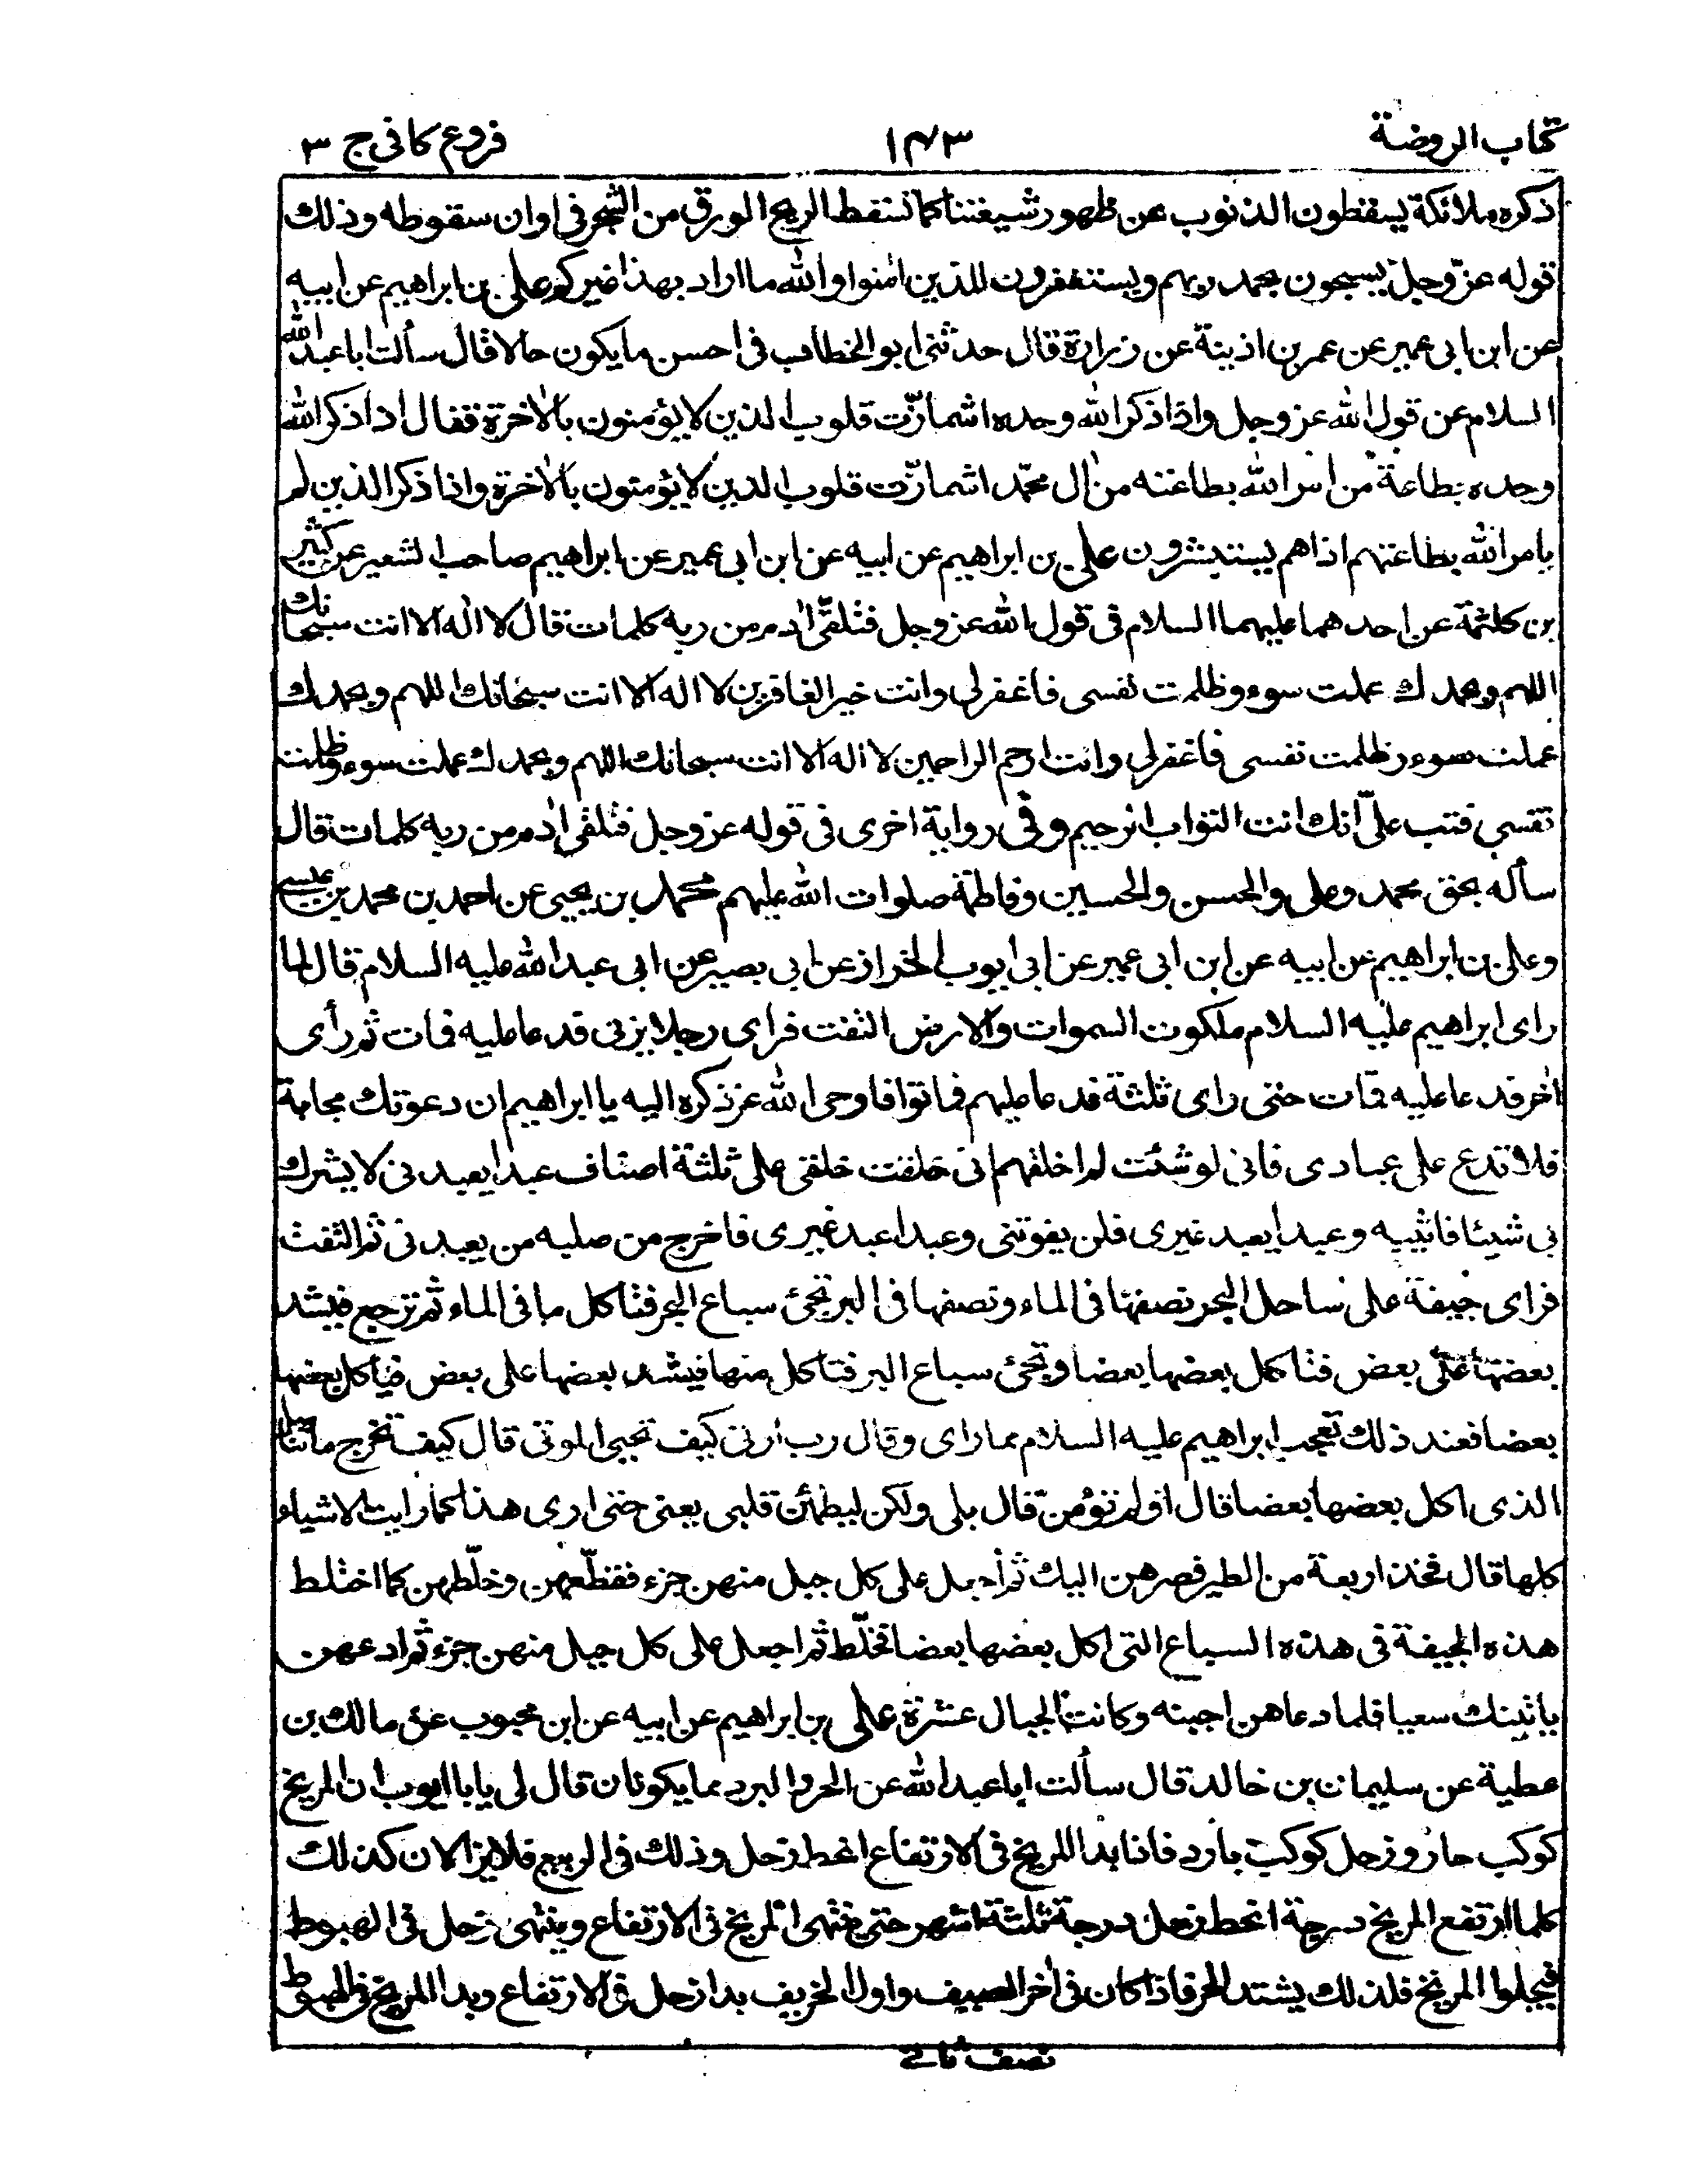 كتاب الروضة
١٤٣
فروع كافى ج ٣
ذكره ملائكة يسقطون الذنوب عن ظهور شيعتنا كما تسقط الريح الورق من الشجر فى اوان سقوطه وذلك
قوله عزّ وجلّ يسبحون بحمد ربهم ويستغفرون للذين اٰمنوا والله ما اراد بهذا غيركم على بن ابراهيم عن ابيه
عن ابن ابى عمير عن عمر بن اذينة عن زرارة قال حدثنى ابو الخطاب فى احسن ما يكون حالا قال سألت ابا عبد الله
السلام عن قول الله عز وجل واذا ذكر الله وحده اشمازّت قلوب الذين لا يؤمنون بالاٰخرة فقال اذا ذكر الله
وحده بطاعة من امر الله بطاعته من اٰل محمّد اشمازّت قلوب الذين لا يؤمنون بالاٰخرة واذا ذكر الذين لم
يامر الله بطاعتهم اذا هم يستبشرون على بن ابراهيم عن ابيه عن ابن ابى عمير عن ابراهيم صاحب الشعير عن كثير
بن كلثمة عن احدهما عليهما السلام فى قول الله عز وجل فتلقّى اٰدم من ربه كلمات قال لا اله الا انت سبحانك
اللهم وبحمدك عملت سوء وظلمت نفسى فاغفر لى وانت خير الغافرين لا اله الا انت سبحانك اللهم وبحمدك
عملت سوء وظلمت نفسى فاغفر لى وانت ارحم الراحمين لا اله الا انت سبحانك اللهم وبحمدك عملت سوء وظلمت
نفسى فتب علىّ انك انت التواب الرحيم وفى رواية اخرى فى قوله عز وجل فتلقى اٰدم من ربه كلمات قال
سأله بحق محمد وعلى والحسن والحسين وفاطمة صلوات الله عليهم محمد بن يحيى عن احمد بن محمد بن عيسى
وعلى بن ابراهيم عن ابيه عن ابن ابى عمير عن ابى ايوب الخراز عن ابى بصير عن ابى عبد الله عليه السلام قال لما
راى ابراهيم عليه السلام ملكوت السموات والارض التفت فراى رجلا يزنى فدعا عليه فمات ثم رأى
اٰخر فدعا عليه فمات حتى راى ثلثة فدعا عليهم فماتوا فاوحى الله عز ذكره اليه يا ابراهيم ان دعوتك مجابة
فلا تدع على عبادى فانى لو شئت لم اخلقهم انى خلقت خلقى على ثلثة اصناف عبدا يعبدنى لا يشرك
بى شيئا فاثيبه وعبدا يعبد غيرى فلن يفوتنى وعبدا عبد غيرى فاخرج من صلبه من يعبدنى ثم التفت
فراى جيفة على ساحل البحر نصفها فى الماء ونصفها فى البر تجئ سباع البحر فتاكل ما فى الماء ثم ترجع فيشد
بعضها على بعض فتاكل بعضها بعضا وتجئ سباع البر فتاكل منها فيشد بعضها على بعض فياكل بعضها
بعضا فعند ذلك تعجب ابراهيم عليه السلام مما راى وقال رب ارنى كيف تحيى الموتى قال كيف تخرج ما تناسل
الذى اكل بعضها بعضا قال اولم تؤمن قال بلى ولكن ليطمئن قلبى يعنى حتى ارى هذا كما رايت الاشياء
كلها قال فخذ اربعة من الطير فصرهن اليك ثم اجعل على كل جبل منهن جزء فقطّعهن وخلّطهن كما اختلط
هذه الجيفة فى هذه السباع التى اكل بعضها بعضا فخلّط ثم اجعل على كل جبل منهن جزء ثم ادعهن
ياتينك سعيا فلما دعاهن اجبنه وكانت الجبال عشرة على بن ابراهيم عن ابيه عن ابن محبوب عن مالك بن
عطية عن سليمان بن خالد قال سألت ابا عبد الله عن الحر والبرد مما يكونان قال لى يا با ايوب ان المريخ
كوكب حار وزحل كوكب بارد فاذا بدا المريخ فى الارتفاع انحط زحل وذلك فى الربيع فلا يزالان كذلك
كلما ارتفع المريخ درجة انحط زحل درجة ثلثة اشهر حتى ينتهى المريخ فى الارتفاع وينتهى زحل فى الهبوط
فيجلوا المريخ فلذلك يشتد الحر فاذا كان فى اٰخر الصيف واول الخريف بدا زحل فى الارتفاع وبدا المريخ فى الهبوط
نصف ثانى